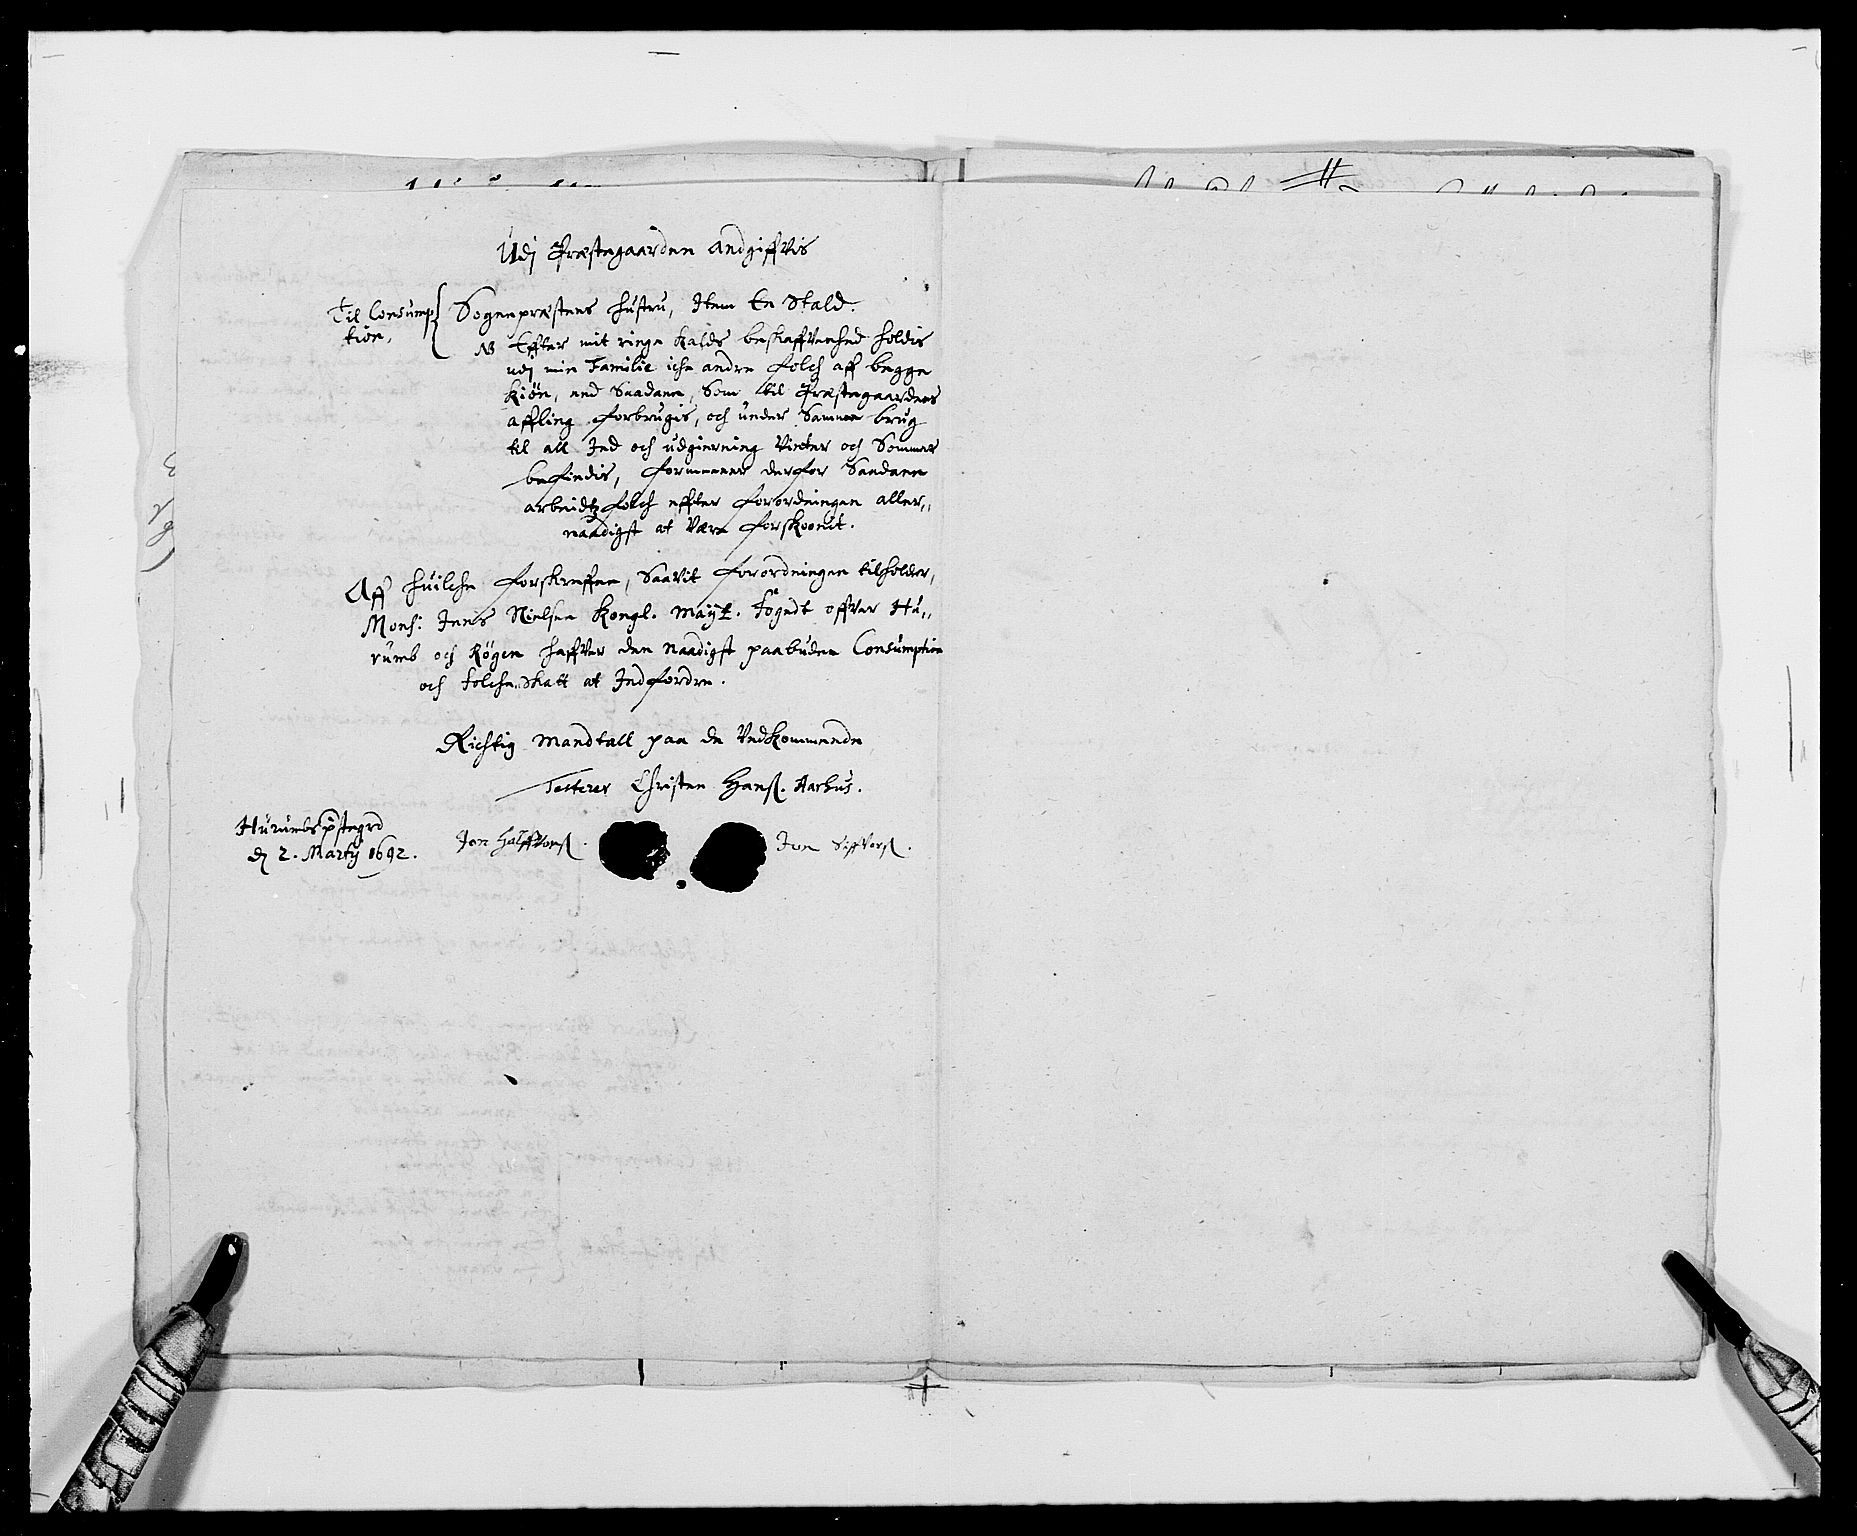 Udj Præstegaarden andgiffvis
Til Consump Sogenpræstens hustru, Item En Stald.
tion,
NB Effter mit ringe Kalds beskaffvenhed holdis
udj min Familie iche andre folch aff begge
Kiøn, end Saadanne, Som til Præstegaardens
affling forbrugis, och under Samme brug
til all Ind och udgierning Vinter och Sommer
befindis, formeener derfor Saadanne
arbeidtzfolch effter forordningen aller,,
naadigst at Være forskoonit.
Aff huilche forskreffne, Saavit forordningen tilholder,
Monsr: Jens Nielsen Kongl. Maytz. fogedt offver Hu,,
rumb och Røgen haffver den Naadigst paabudne Consumption
och folche,,Skatt at Indfordre.
Richtig Mandtall paa de Vedkommende
Testerer Christen Hanß. Aarhus.
Hurumbs pstegrd
dj 2. Martij 1692.
Jon Halffvorß.
Jon Siffverß.